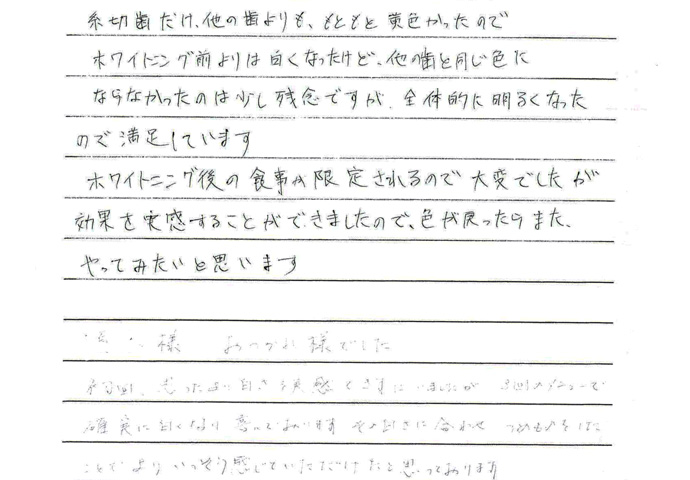 糸切歯だけ、他の歯よりも、もともと黄色かったので
ホワイトニング前よりは白くなったけど、他の歯と同じ色に
ならなかったのは少し残念ですが、全体的に明るくなった
ので満足しています
ホワイトニング後の食事が限定されるので大変でしたが
効果を実感することができましたので、色が戻ったらまた、
やってみたいと思います
様 おつかれ様でした
思ったより白さを実感
確実に白くなり喜んでおります その白さに合わせ つめものをした
ことでよりいっそう感じていただけたと思っております